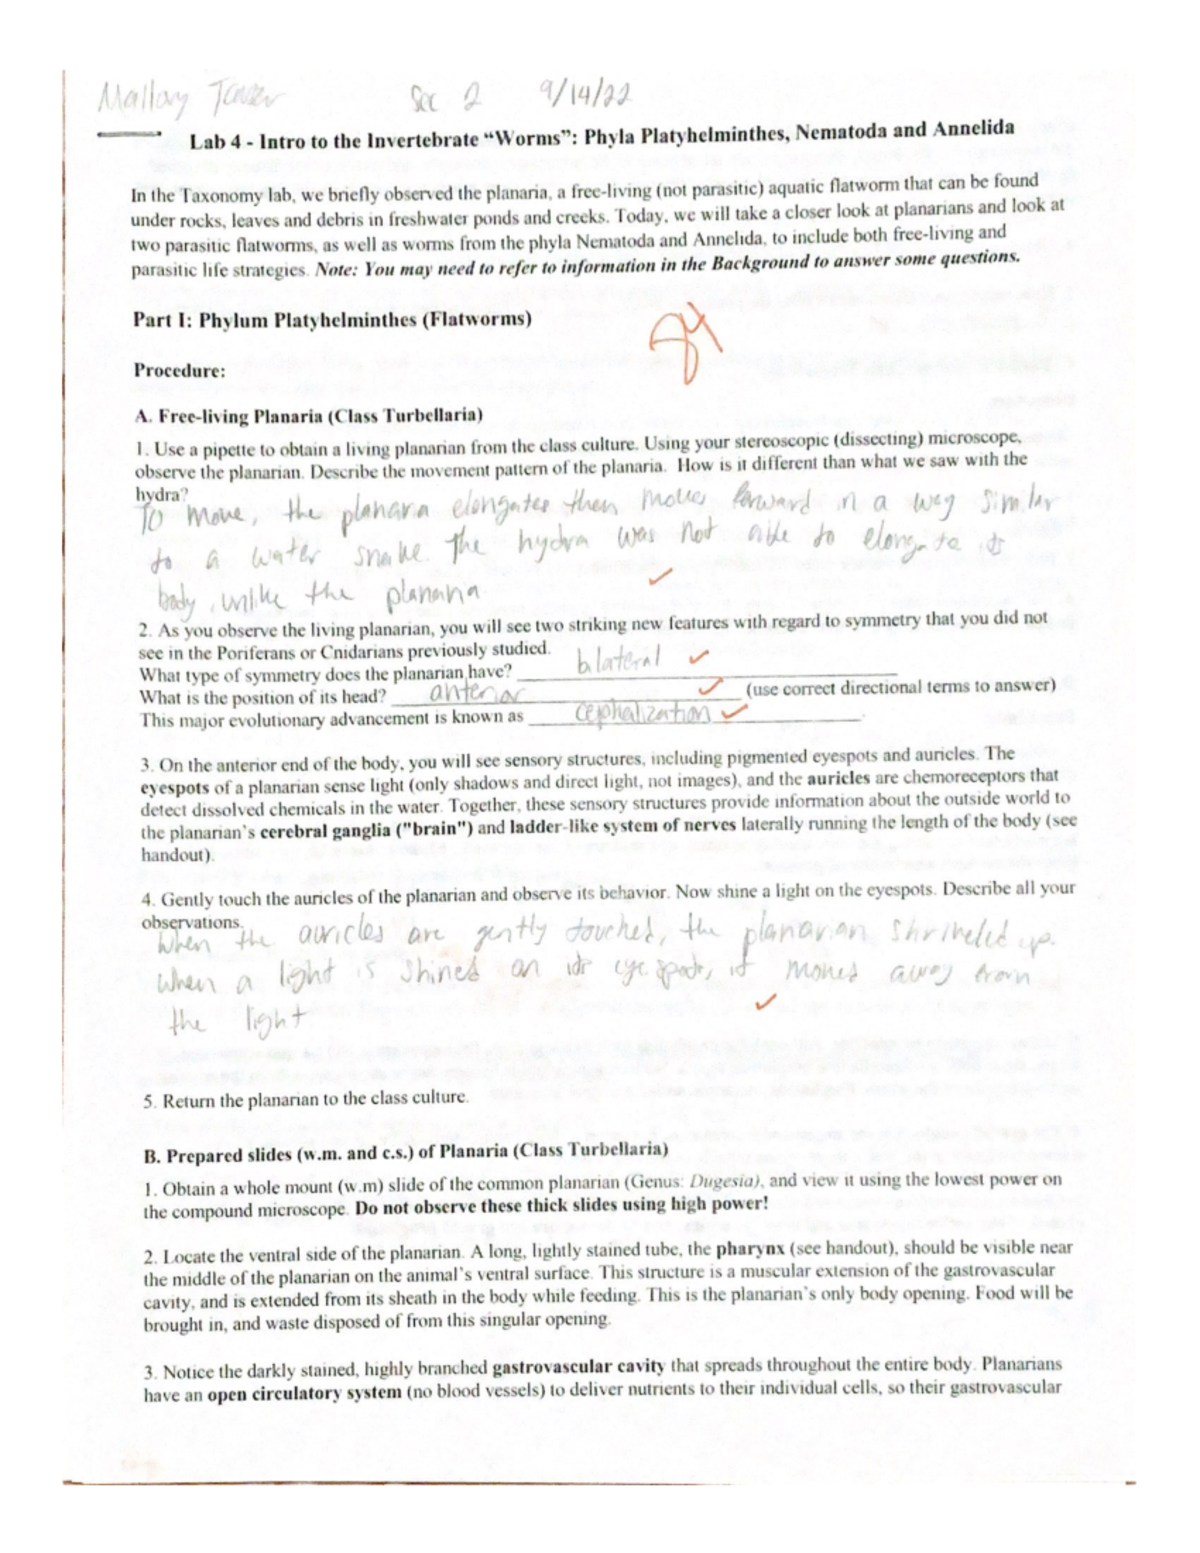 Mallory Sec 2 9/14/22
Lab 4 - Intro to the Invertebrate “Worms”: Phyla Platyhelminthes, Nematoda and Annelida
In the Taxonomy lab, we briefly observed the planaria, a free-living (not parasitic) aquatic flatworm that can be found
under rocks, leaves and debris in freshwater ponds and creeks. Today, we will take a closer look at planarians and look at
two parasitic flatworms, as well as worms from the phyla Nematoda and Annelida, to include both free-living and
parasitic life strategies. Note: You may need to refer to information in the Background to answer some questions.
Part I: Phylum Platyhelminthes (Flatworms)
Procedure:
A. Free-living Planaria (Class Turbellaria)
1. Use a pipette to obtain a living planarian from the class culture. Using your stereoscopic (dissecting) microscope,
observe the planarian. Describe the movement pattern of the planaria. How is it different than what we saw with the
hydra?
To move, the planaria elongates then moves forward in a way similar
to a water snake The hydra was not able to elongate its
body, unlike the planaria
2. As you observe the living planarian, you will see two striking new features with regard to symmetry that you did not
see in the Poriferans or Cnidarians previously studied.
What type of symmetry does the planarian have? bilateral
What is the position of its head? anterior (use correct directional terms to answer)
This major evolutionary advancement is known as cephalization.
3. On the anterior end of the body, you will see sensory structures, including pigmented eyespots and auricles. The
eyespots of a planarian sense light (only shadows and direct light, not images), and the auricles are chemoreceptors that
detect dissolved chemicals in the water. Together, these sensory structures provide information about the outside world to
the planarian's cerebral ganglia ("brain") and ladder-like system of nerves laterally running the length of the body (see
handout).
4. Gently touch the auricles of the planarian and observe its behavior. Now shine a light on the eyespots. Describe all your
observations.
When the auricles are gently touched, the planarian shriveled up.
When a light is shined on its eye spots, it moved away from
the light
5. Return the planarian to the class culture.
B. Prepared slides (w.m. and c.s.) of Planaria (Class Turbellaria)
1. Obtain a whole mount (w.m) slide of the common planarian (Genus: Dugesia), and view it using the lowest power on
the compound microscope. Do not observe these thick slides using high power!
2. Locate the ventral side of the planarian. A long, lightly stained tube, the pharynx (see handout), should be visible near
the middle of the planarian on the animal's ventral surface. This structure is a muscular extension of the gastrovascular
cavity, and is extended from its sheath in the body while feeding. This is the planarian's only body opening. Food will be
brought in, and waste disposed of from this singular opening.
3. Notice the darkly stained, highly branched gastrovascular cavity that spreads throughout the entire body. Planarians
have an open circulatory system (no blood vessels) to deliver nutrients to their individual cells, so their gastrovascular